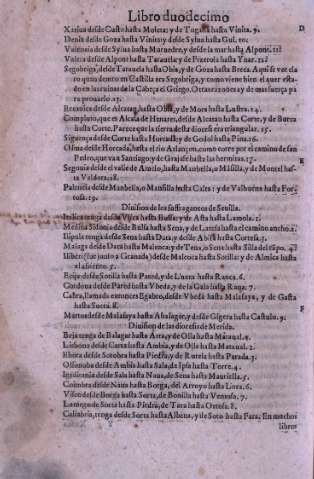 Libro duodecimo
Xatiua desde Custo hasta Moleta; y de Togola hasta Vinita. 9.
Denia desde Goza hasta Vinita y desde Silua hasta Gul. 10.
Valencia desde Sylua hasta Muruedre, y desde la mar hasta Alpont. 11
Valera desde Alpont hasta Tarauela, y de Pizerola hasta Ynar. 12
Segobriga, desde Tarauela hasta Obia, y de Goza hasta Breca. Aqui se vee cla
ro que dentro en Castilla era Segobriga, y como viene bien el auer esta-
do en las ruinas de la Cabeça el Griego. Otras razones ay de mas fuerça
para prouarlo. 13.
Breauica desde Alcazar hasta Obia, y de Mora hasta Lustra. 14.
Compluto, que es Alcala de Henares, desde Alcazar hasta Corte, y de Burra
hasta Corte. Parece que la tierra desta diocesi era triangular. 15.
Siguença desde Corte hasta Furcala; y de Godol hasta Pina. 16.
Osma desde Horcada, hasta el rio Aslançon, como corre por el camino de san
Pedro, que va a Santiago: y de Grajes hasta las hermitas. 17.
Segouia desde el valle de Amelo, hasta Manbella, o Masilla, y de Montel has-
ta Valdora. 18.
Palencia desde Manbella, o Mansilla hasta Calta: y de Valbuena hasta For-
tosa. 19.
Diuision de los suffraganeos de Seuilla.
Italica tenga desde Vlca hasta Bussa: y de Asta hasta Lamola. 1.
Medina Sidonia desde Bulsa hasta Sena, y de Lateia hasta el camino ancho. 2.
Ilipula tenga desde Sena hasta Data, y desde Abisa hasta Cortesa. 3.
Malaga desde Data hasta Maleoca, y de Tena, o Sota hasta Silla del cãpo. 4
Iliberi (fue junto a Granada) desde Maleoca hasta Sotilla: y de Almica hasta
el abismo. 5.
Ecija desde Sotilla hasta Pared, y de Luca hasta Ranca. 6.
Cordoua desde Pared hasta Vbeda, y de la Gala hasta Rana. 7.
Cabra, llamado entonces Egabro, desde Vbeda hasta Malasaya, y de Gasta
hasta Sucta. 8.
Martos desde Malasaya hasta Abalagar, y desde Gigera hasta Castulo. 9.
Diuision de las diocesis de Merida.
Beja tenga de Balagar hasta Arta, y de Olla hasta Mataual. 2.
Lisbona desde Carta hasta Ambia, y de Olla hasta Mataual. 2.
Ebora desde Sotobra hasta Piedra, y de Rutela hasta Parada. 3.
Ossonoba desde Ambia hasta Sala, de Ipsa hasta Torre. 4.
Igeditania desde Sala hasta Naua, de Sena hasta Mauriella. 5.
Coimbra desde Naua hasta Borga, del Arroyo hasta Lora. 6.
Viseo desde Borga hasta Sorta, de Bonilla hasta Ventosa. 7.
Lamego de Sorta hasta Piedra, de Tara hasta Ortosa. 8.
Calabria, tenga desde Sorta hasta Albena, y de Soto hasta Fara. En muchos
libros